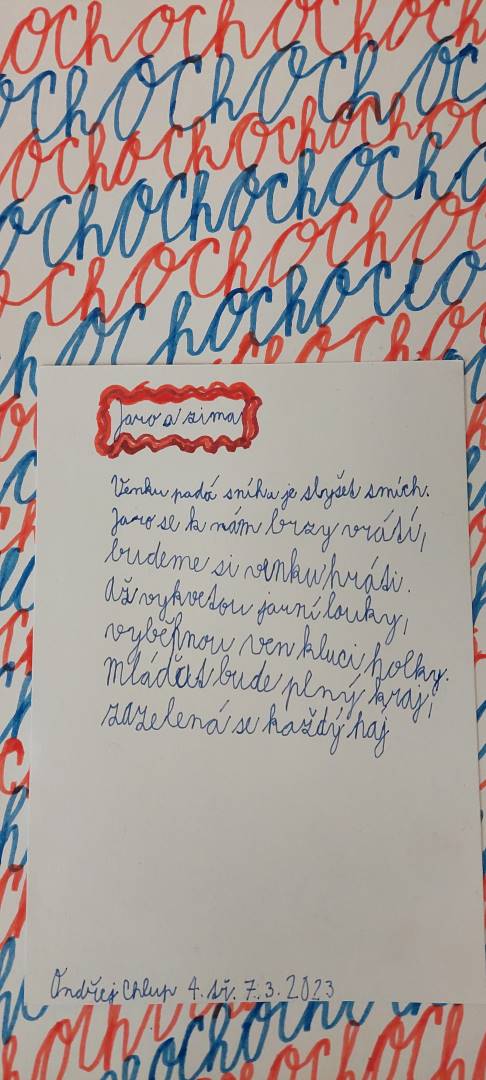 ochochochochoch
ochochochoch
ochochochochoch
ochochochochoch
ochochochochoc
ochochochocho
Jaro a zima
Venku padá sníh u je slyšet smích.
Jaro se k nám brzy vrátí,
budeme si venku hráti.
Až vykvetou jarní louky,
vyběhnou ven kluci holky.
Mláďat bude plný kraj,
zazelená se každý haj
Ondřej Chlup 4. tř. 7.3.2023